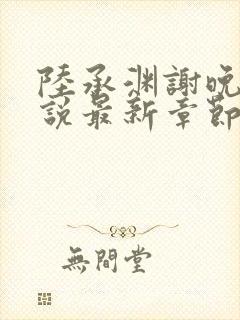 陸承渊謝晚
說最新章節
無間堂